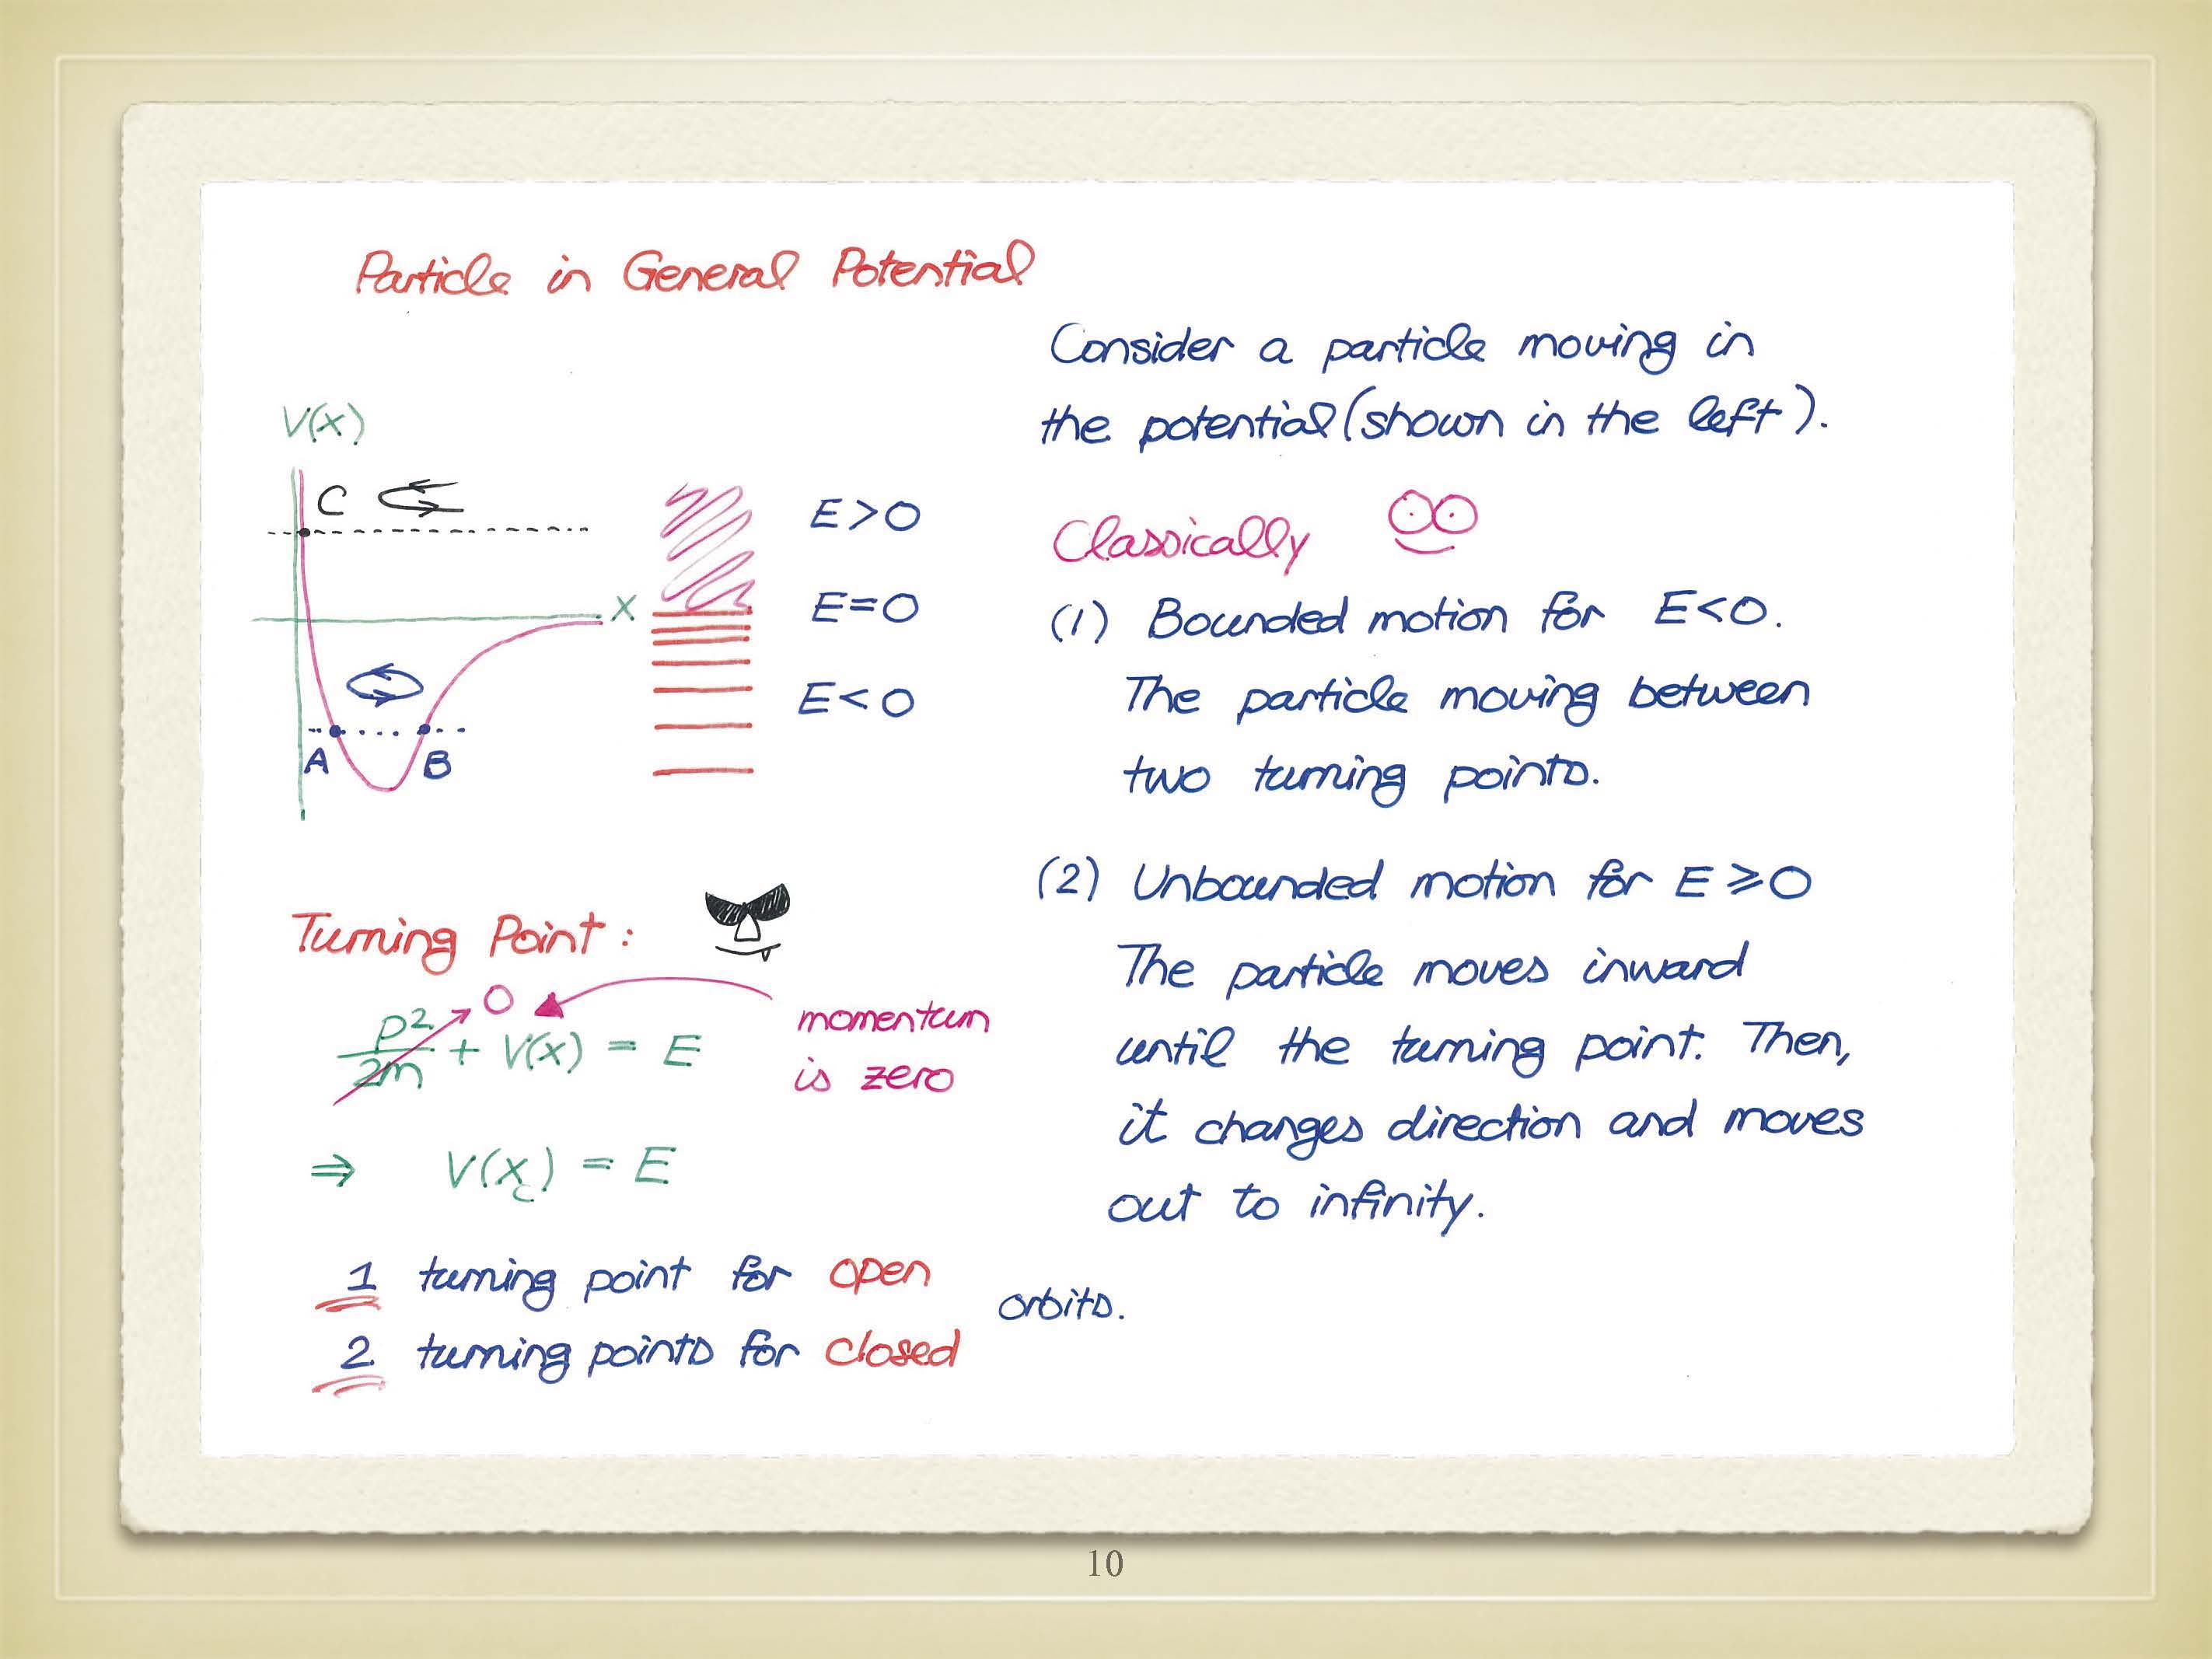 Particle in General Potential
V(x)
C
X
A
B
E>0
E=0
E<0
Turning Point :
p²/2m → 0 + V(x) = E
momentum
is zero
⇒ V(x_c) = E
1 turning point for open
2 turning points for closed
orbits.
Consider a particle moving in
the potential (shown in the left).
Classically
(1) Bounded motion for E<0.
The particle moving between
two turning points.
(2) Unbounded motion for E⩾0
The particle moves inward
until the turning point. Then,
it changes direction and moves
out to infinity.
10